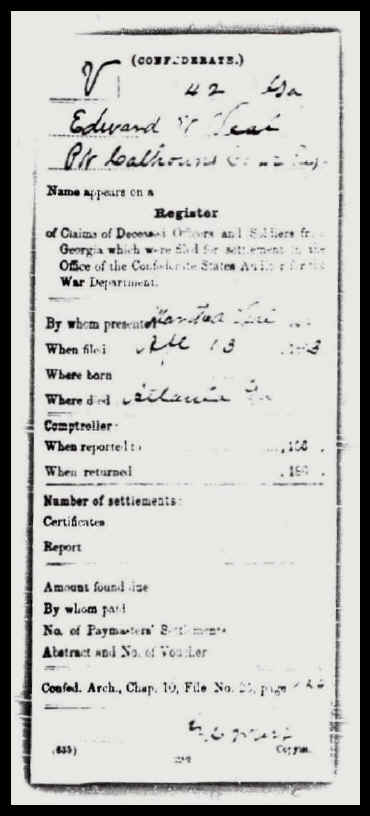 (CONFEDERATE.)
V 42 Ga
Edward
Pvt Calhoun's
Name appears on a
Register
of Claims of Deceased Officers and Soldiers from
Georgia which were filed for settlement in the
Office of the Confederate States Auditor for the
War Department.
By whom presented
When filed 13
Where born
Where died Atlanta Ga
Comptroller:
When reported to , 186 .
When returned , 186 .
Number of settlements:
Certificates
Report
Amount found due
By whom paid
No. of Paymasters' Settlements
Abstract and No. of Voucher
Confed. Arch., Chap. 10, File No. , page
(635) Copyist.